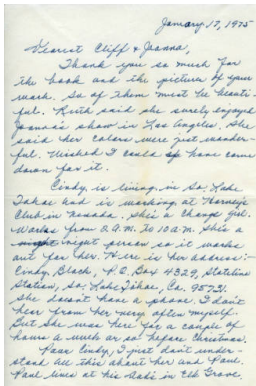 January 17, 1975
Dearest Cliff & Joanna,
Thank you so much for
the book and the pictures of your
work. So of them must be beauti-
ful. Ruth said she surely enjoyed
Joanna's show in Los Angeles. She
said her colors were just wonder-
ful. Wished I could have come
down for it.
Cindy is living in So. Lake
Tahoe and is working at
Club in Nevada. She's a change girl.
Works from 2 A.M. to 10 A.M. She's a
night person so it works
out for her. Here is her address:-
Cindy Black, P.O. Box 4329, Stateline
Station, So. Lake Tahoe, Ca. 95731.
She doesn't have a phone. I don't
hear from her very often myself.
But she was here for a couple of
hours a week or so before Christmas.
Poor Cindy, I just don't under-
stand all this about her and Paul.
Paul lives at his in Elk Grove.